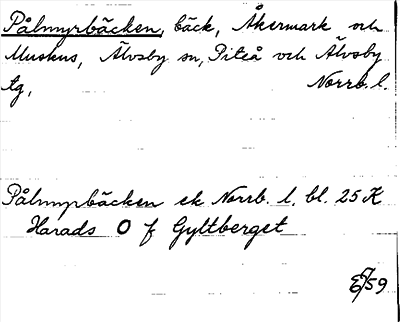 Pålmyrbäcken, bäck, Åkermark och
Muskus, Älvsby sn, Piteå och Älvsby
tg, Norrb. l.
Pålmyrbäcken ek Norrb. l. bl. 25 K
Harads O f Gyltberget
59